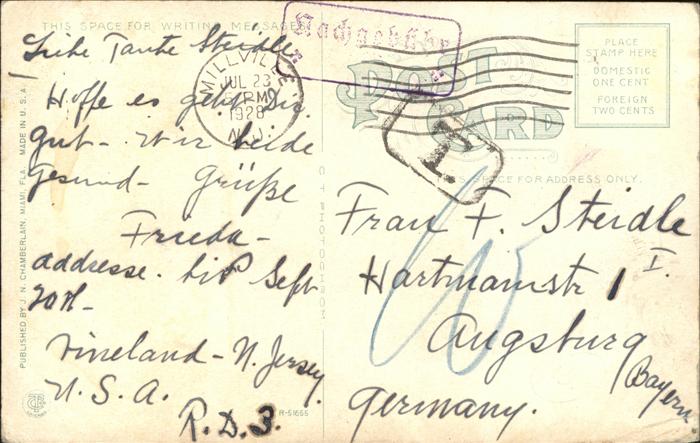 THIS SPACE FOR WRITING MESSAGES
Liebe Tante Steidle,
Hoffe es geht Dir
gut - Wir beide
gesund - Grüße
Frieda -
addresse. bis Sept
20th -
Vineland - N. Jersey.
U. S. A.
R. D. 3.
PUBLISHED BY J. N. CHAMBERLAIN, MIAMI, FLA. MADE IN U. S. A.
R-51666
MILLVILLE
JUL 23
5 PM
1928
N.J.
Nachgebühr
T.
POST CARD
PLACE
STAMP HERE
DOMESTIC
ONE CENT
FOREIGN
TWO CENTS
THIS SPACE FOR ADDRESS ONLY.
Frau F. Steidle
Hartmannstr 1 I.
Augsburg
Bayern
Germany.